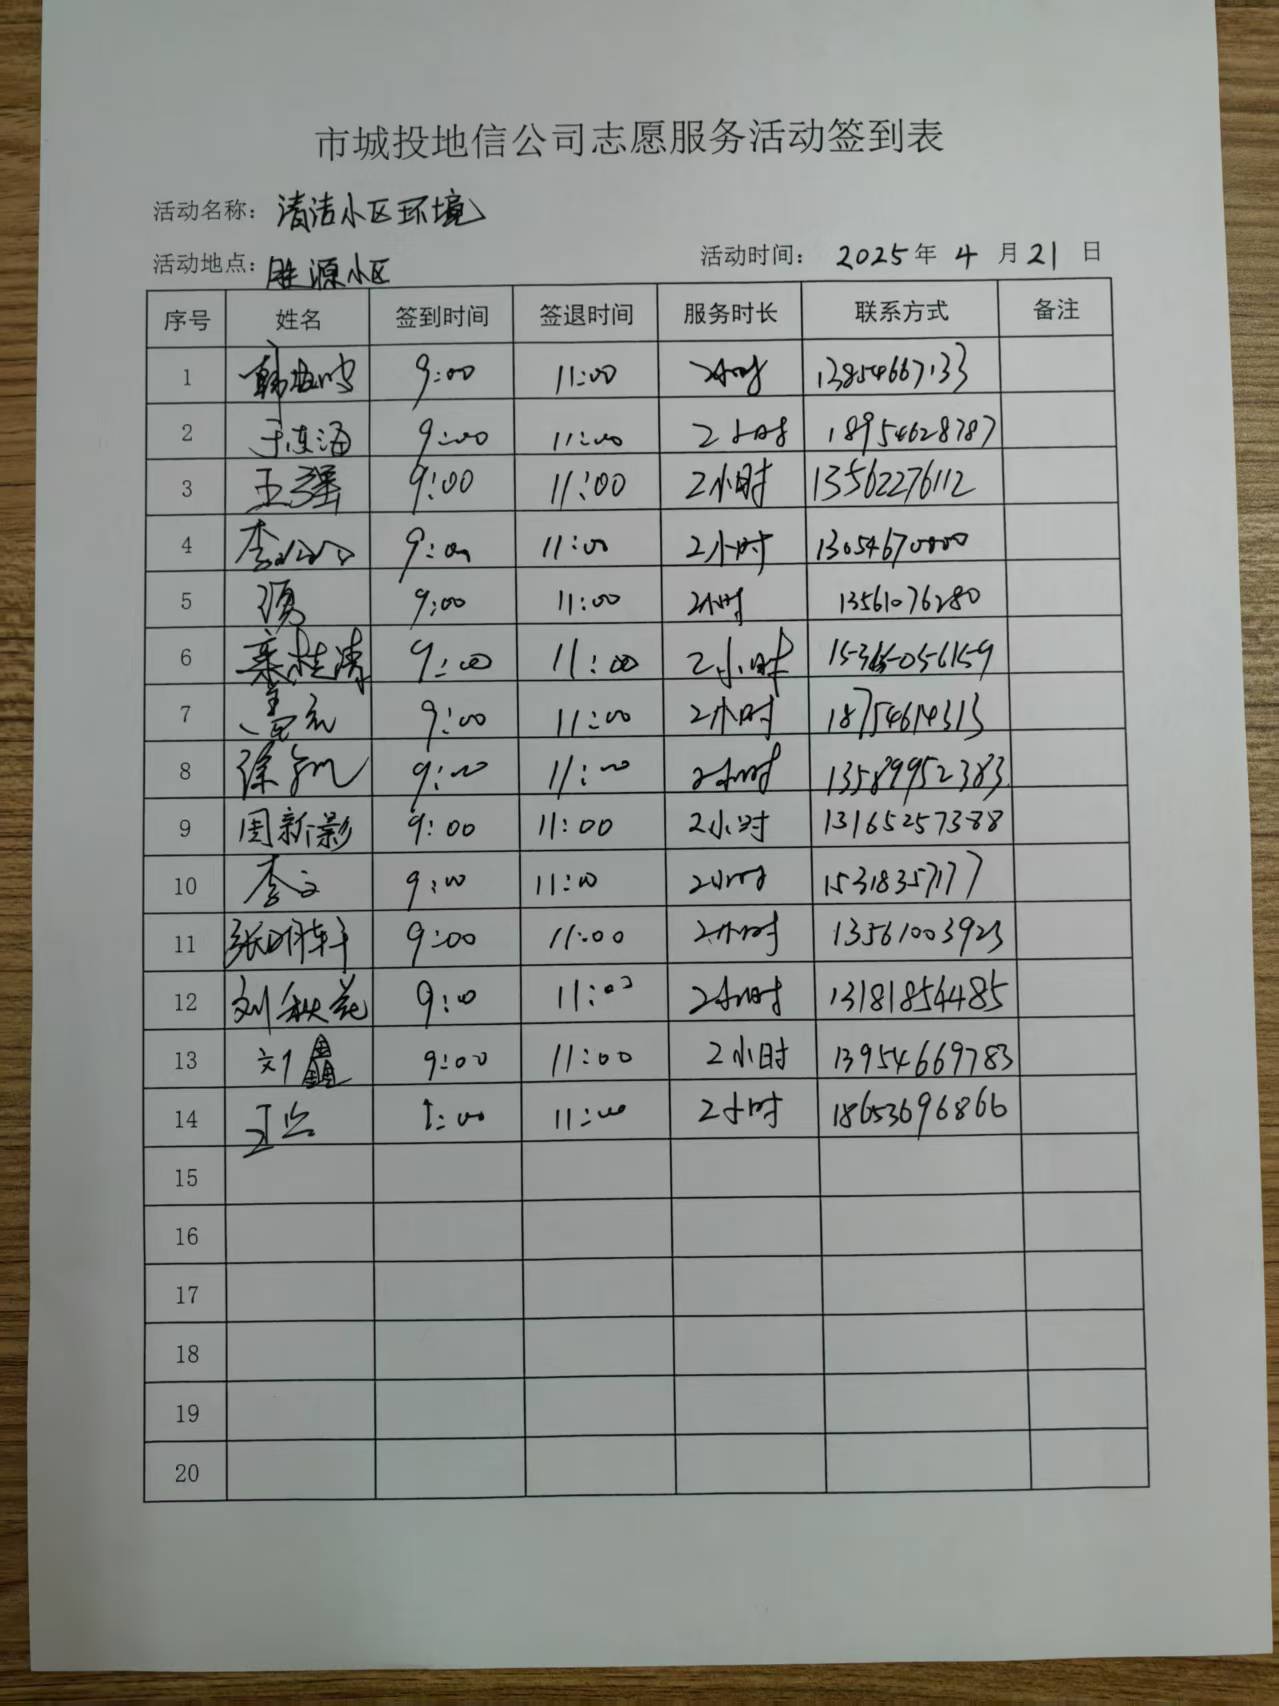 市城投地信公司志愿服务活动签到表
活动名称：清洁小区环境
活动地点：胜源小区 活动时间： 2025年 4 月 21 日
序号 姓名 签到时间 签退时间 服务时长 联系方式 备注
1 9:00 11:00 2小时 13854667133
2 于连海 9:00 11:00 2小时 18954628787
3 王强 9:00 11:00 2小时 13562276112
4 9:00 11:00 2小时 13054670000
5 9:00 11:00 2小时 13561076280
6 9:00 11:00 2小时
7 9:00 11:00 2小时 18754614313
8 9:00 11:00 2小时 13589952383
9 周新影 9:00 11:00 2小时 13165257388
10 李文 9:00 11:00 2小时 15318357177
11 9:00 11:00 2小时 13561003923
12 刘秋花 9:00 11:00 2小时 13181854485
13 9:00 11:00 2小时 13954669783
14 11:00 2小时 18653696866
15
16
17
18
19
20